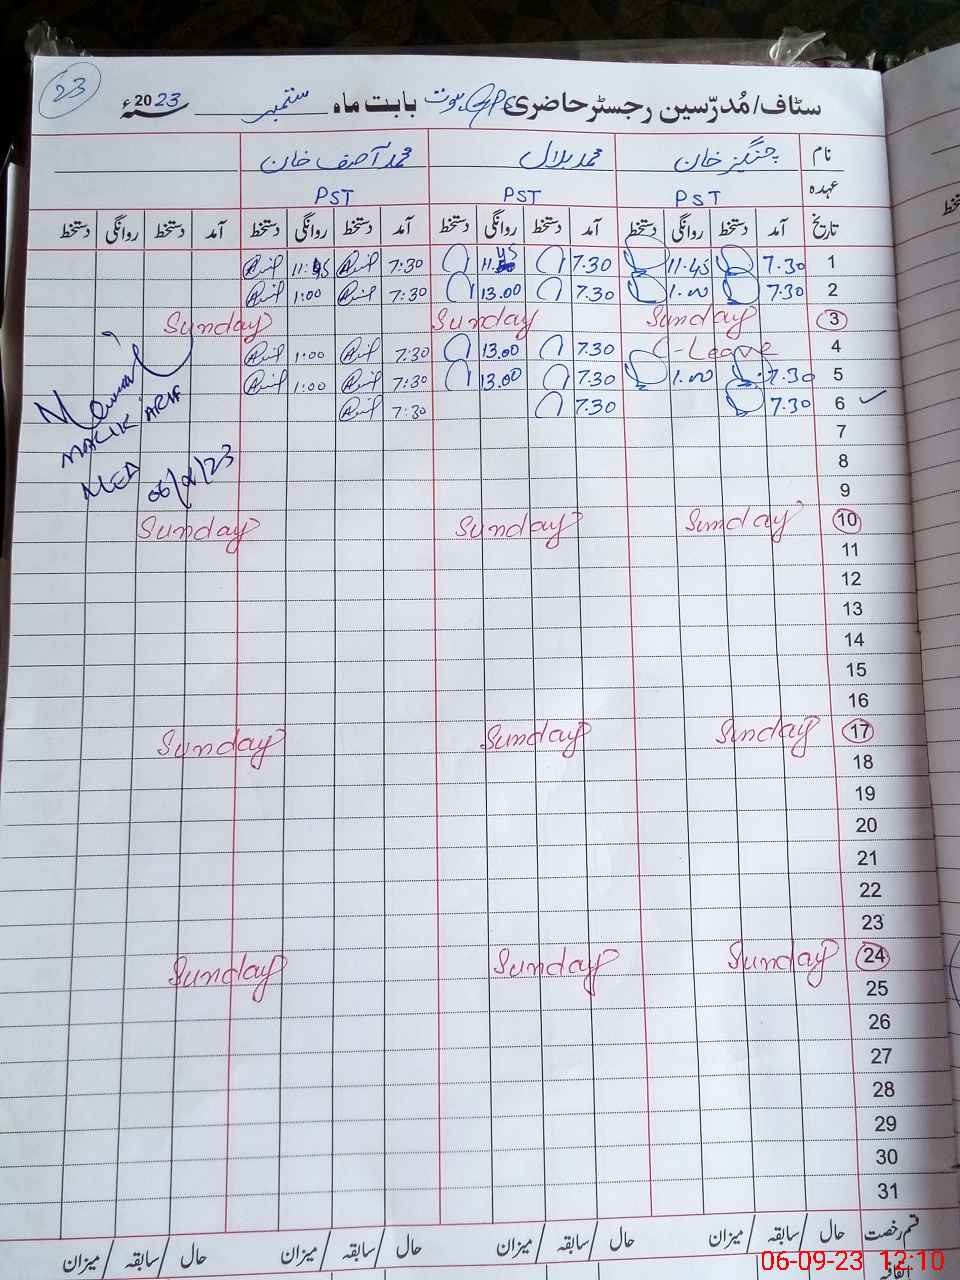 23
سٹاف/مُدرّسین رجسٹر حاضری GPS بابت ماہ ستمبر 2023ء
نام چنگیز خان محمد بلال محمد آصف خان
عہدہ PST PST PST
تاریخ آمد دستخط روانگی دستخط آمد دستخط روانگی دستخط آمد دستخط روانگی دستخط آمد دستخط روانگی دستخط
1 7.30 11.45 7.30 11.45 7:30 Asif 11:45 Asif
2 7.30 1.00 7.30 13.00 7:30 Asif 1:00 Asif
3 Sunday Sunday Sunday
4 C-Leave 7.30 13.00 7:30 Asif 1:00 Asif
5 7.30 1.00 7.30 13.00 7:30 Asif 1:00 Asif
6 7.30 7.30 7:30 Asif
MALIK ARIF
MEA 06/9/23
7
8
9
10 Sunday Sunday Sunday
11
12
13
14
15
16
17 Sunday Sunday Sunday
18
19
20
21
22
23
24 Sunday Sunday Sunday
25
26
27
28
29
30
31
قسم رخصت حال / سابقہ / میزان حال / سابقہ / میزان حال / سابقہ / میزان حال / سابقہ / میزان
06-09-23 12:10